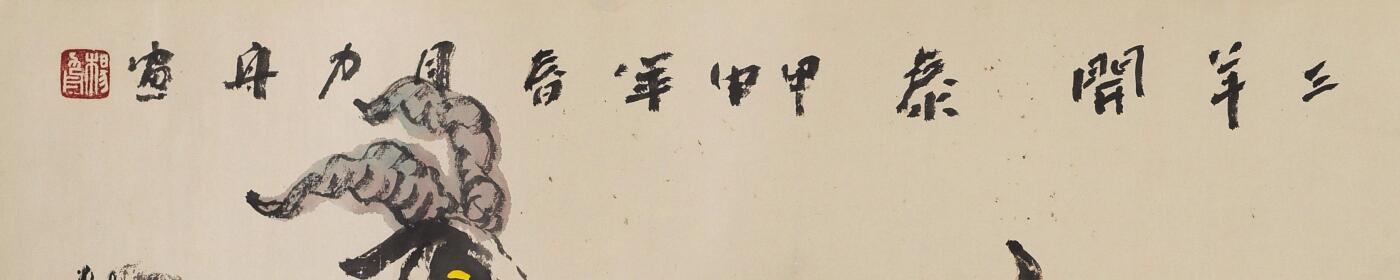 三羊開泰 甲申年春月力舟畫